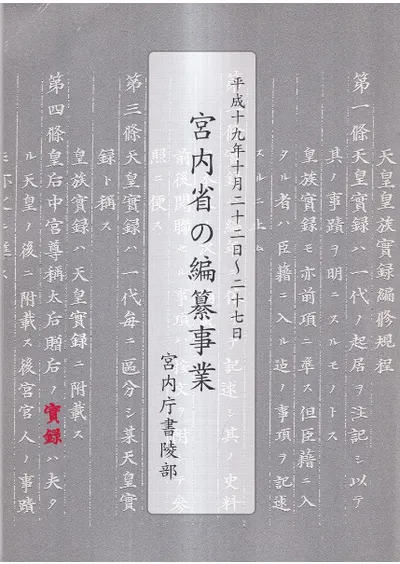 平成十九年十月二十二日～二十七日
宮内省の編纂事業
宮内庁書陵部
天皇皇族實録編修規程
第一條 天皇實録ハ一代ノ起居ヲ注記シ以テ
其ノ事蹟ヲ明ニスルモノトス
皇族實録モ亦前項ニ準ス但臣籍ニ入
タル者ハ臣籍ニ入ル迠ノ事項ヲ記述
スルニ止ム
第三條 天皇實録ハ一代毎ニ區分シ某天皇實
録ト稱ス
皇族實録ハ天皇實録ニ附載ス
第四條 皇后中宮尊稱太后贈后ノ實録ハ夫々
ル天皇ノ後ニ附載ス後宮官人ノ事蹟